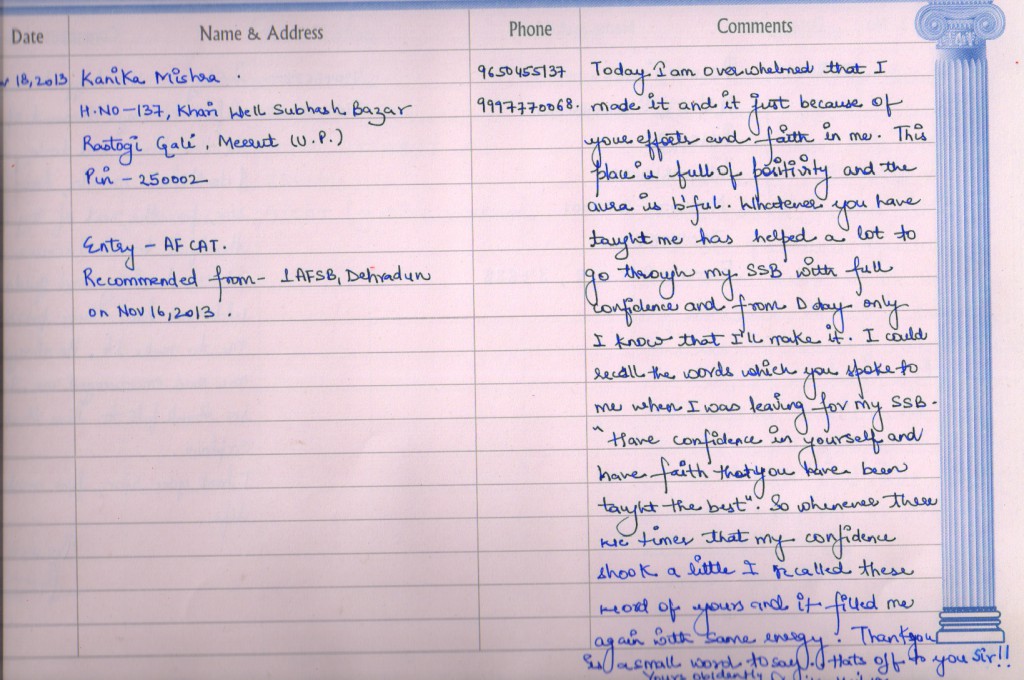 Date Name & Address Phone Comments
18, 2013 Kanika Mishra . 9650455137 Today I am overwhelmed that I
H.No-137, Khari Well Subhash Bazar 9997770068. made it and it just because of
Rastogi Gali, Meerut (U.P.) your efforts and faith in me. This
Pin - 250002 place is full of positivity and the
aura is b'ful. Whatever you have
Entry - AFCAT. taught me has helped a lot to
Recommended from - 1AFSB, Dehradun go through my SSB with full
on Nov 16, 2013 . confidence and from D day only
I know that I'll make it. I could
recall the words which you spoke to
me when I was leaving for my SSB.
"Have confidence in yourself and
have faith that you have been
taught the best". So whenever there
were times that my confidence
shook a little I recalled these
word of yours and it filled me
again with same energy. Thankyou
is a small word to say. Hats off to you Sir!!
Yours obidently